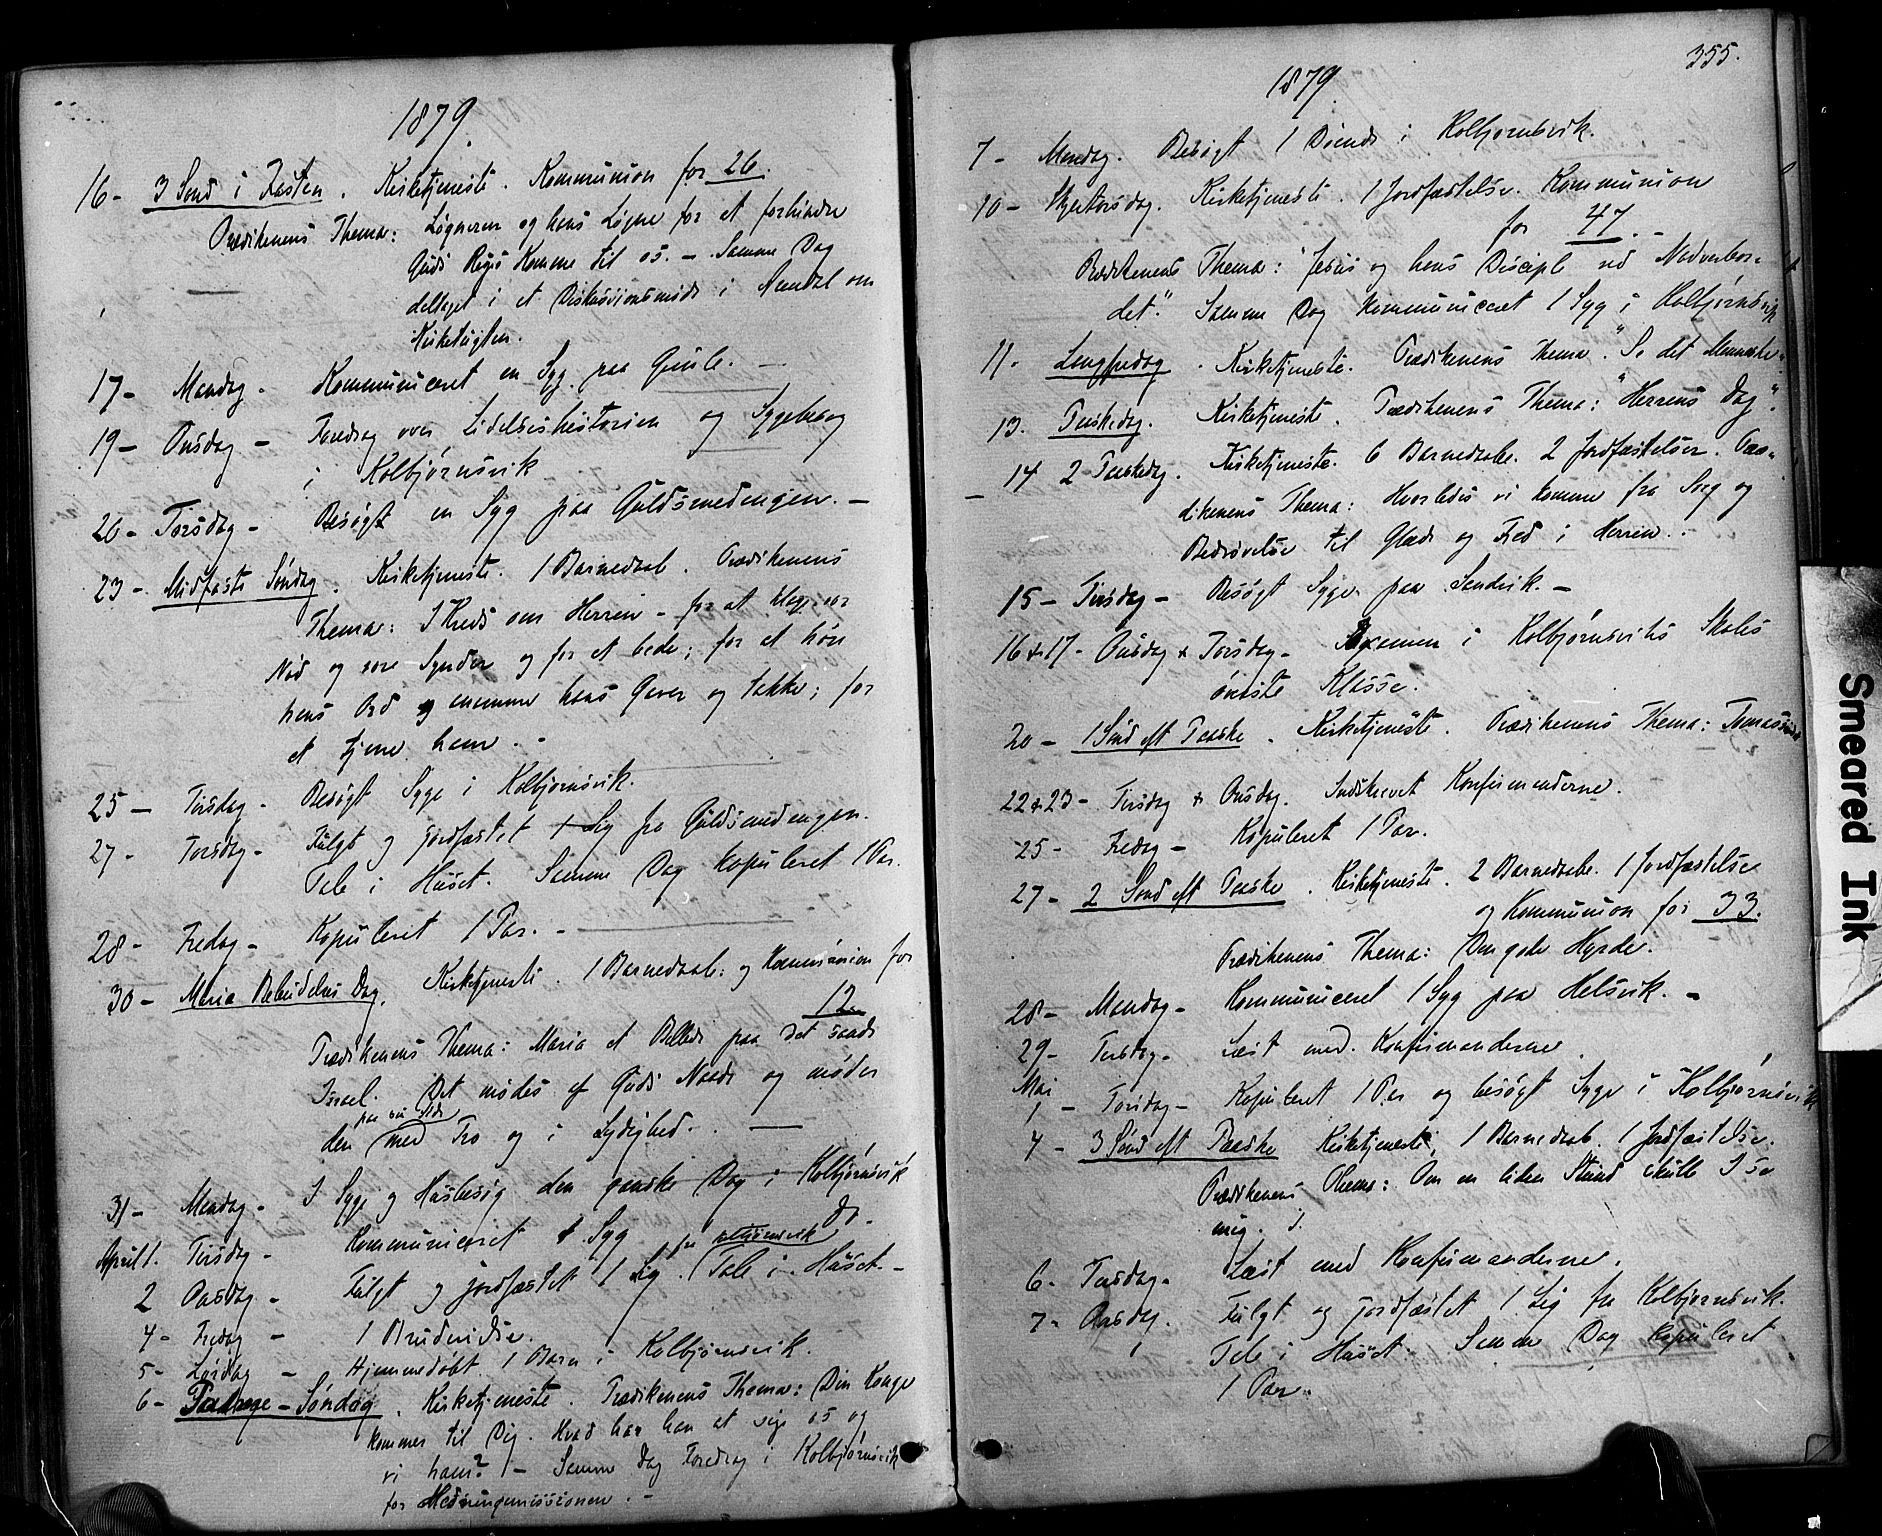 1879.
16 - 3 Sønd i Fasten. Kirketjeneste. Kommunion for 26.
Prædikenens Thema: Løgneren og hans Løgne for at forhindre
Guds Riges Komme til os. - Samme Dag
deltaget i et Diskussionsmøde i Arendal om
Kirketugten.
17 - Mandag - Kommuniceret en Syg paa Gimle. -
19 - Onsdag - Foredrag over Lidelseshistorien og Sygebesøg
i Kolbjørnsvik
20 - Torsdag - Besøgt en Syg paa Guldsmedengen. -
23 - Midfaste Søndag. Kirketjeneste. 1 Barnedaab. Prædikenens
Thema: I Kreds om Herren - for at klage vor
Nød og vore Synder og for at bede; for at høre
hans Ord og annamme hans Gaver og takke; for
at tjene ham. -
25 - Tirsdag - Besøgt Syge i Kolbjørnsvik.
27 - Torsdag - Fulgt og jordfæstet 1 Lig fra Guldsmedengen.
Tale i Huset. Samme Dag kopuleret 1 Par.
28 - Fredag - Kopuleret 1 Par. -
30 - Maria Bebudelses Dag. Kirketjeneste. 1 Barnedaab: og Kommunion for
12.
Prædikenens Thema: Maria et Billede paa det sande
Israel. Det mødes af Guds Naade og møder
paa sin Side
den med Tro og i Lydighed. -
31 - Mandag - I Syge og Husbesøg den ganske Dag i Kolbjørnsvik
April 1. Tirsdag - Kommuniceret 1 Syg do -
fra Kolbjørnsvik
2 Onsdag - Fulgt og jordfæstet 1 Lig. (Tale i Huset -
4 - Fredag - 1 Brudevielse.
5 - Lørdag - Hjemmedøbt 1 Barn i Kolbjørnsvik.
6 - Palme - Søndag. Kirketjeneste. Prædikenens Thema: Din Konge
kommer til Dig. Hvad har han at sige os og
vi ham? - Samme Dag Foredrag i Kolbjørnsvik
for Hedningemissionen. -
355.
1879.
7 - Mandag. Besøgt 1 Døende i Kolbjørnsvik.
10 - Skjertorsdag. Kirketjeneste. 1 Jordfæstelse. Kommunion
for 47. -
Prædikenens Thema: "Jesus og hans Disciple ved Nadverbor-
det". Samme Dag kommuniceret 1 Syg i Kolbjørnsvik
11. Langfredag. Kirketjeneste. Prædikenens Thema "Se det Menneske"
13. Paaskedag. Kirketjeneste. Prædikenens Thema: "Herrens Dag".
- 14 2 Paaskedag. Kirketjeneste. 6 Barnedaabe. 2 Jordfæstelser. Præ-
dikenens Thema: Hvorledes vi komme fra Sorg og
Bedrøvelse til Glæde og Fred i Herren. -
15 - Tirsdag - Besøgt Syge paa Sandvik. -
16 & 17 - Onsdag & Torsdag - Examen i Kolbjørnsviks Skoles
øverste Klasse.
20 - 1 Sønd eft Paaske. Kirketjeneste. Prædikenens Thema: Thomas
22 & 23 - Tirsdag & Onsdag. Indskrevet Konfirmanderne.
25 - Fredag - Kopuleret 1 Par.
27 - 2 Sønd eft Paaske. Kirketjeneste. 2 Barnedaabe. 1 Jordfæstelse
og Kommunion for 33.
Prædikenens Thema: Den gode Hyrde.
28 - Mandag - Kommuniceret 1 Syg paa Helsvik. -
29 - Tirsdag - Læst med Konfirmanderne.
Mai
1 - Torsdag - Kopuleret 1 Par og besøgt Syge i Kolbjørnsvik
4 - 3 Sønd eft Paaske Kirketjeneste, 1 Barnedaab. 1 Jordfæstelse.
Prædikenens Thema: Om en liden Stund skulle I se
mig.
6 - Tirsdag - Læst med Konfirmanderne.
7 - Onsdag. Fulgt og jordfæstet 1 Lig fra Kolbjørnsvik.
Tale i Huset. Samme Dag kopuleret
1 Par.
Smeared Ink